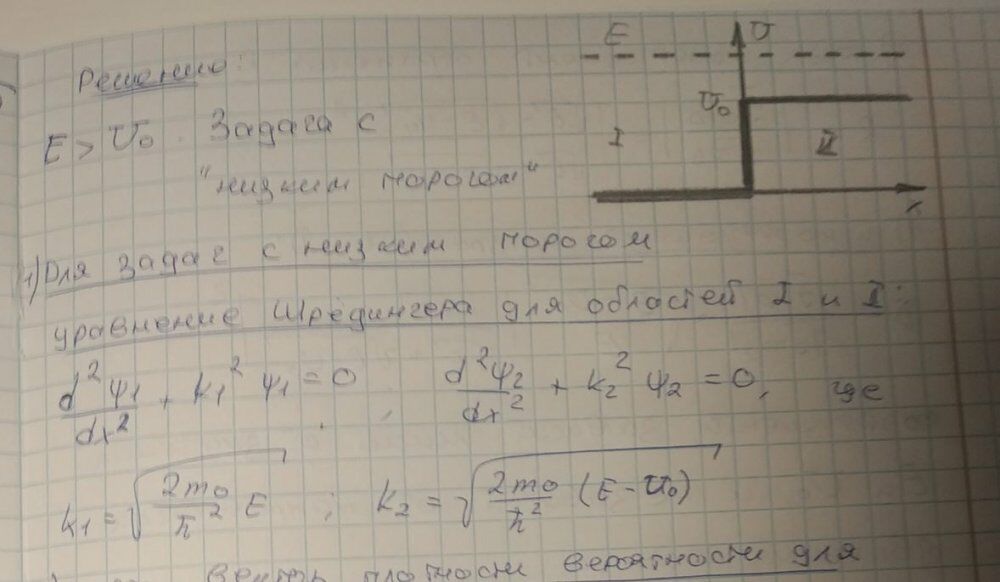 Решение:
E > U₀. Задача с
"низким порогом"
E
U
U₀
I
II
x
1) Для задач с низким порогом
уравнение Шредингера для областей I и I:
d²ψ₁/dx² + k₁² ψ₁ = 0, d²ψ₂/dx² + k₂² ψ₂ = 0, где
k₁ = √(2m₀/ħ² E) ; k₂ = √(2m₀/ħ² (E - U₀))
плотности вероятности для